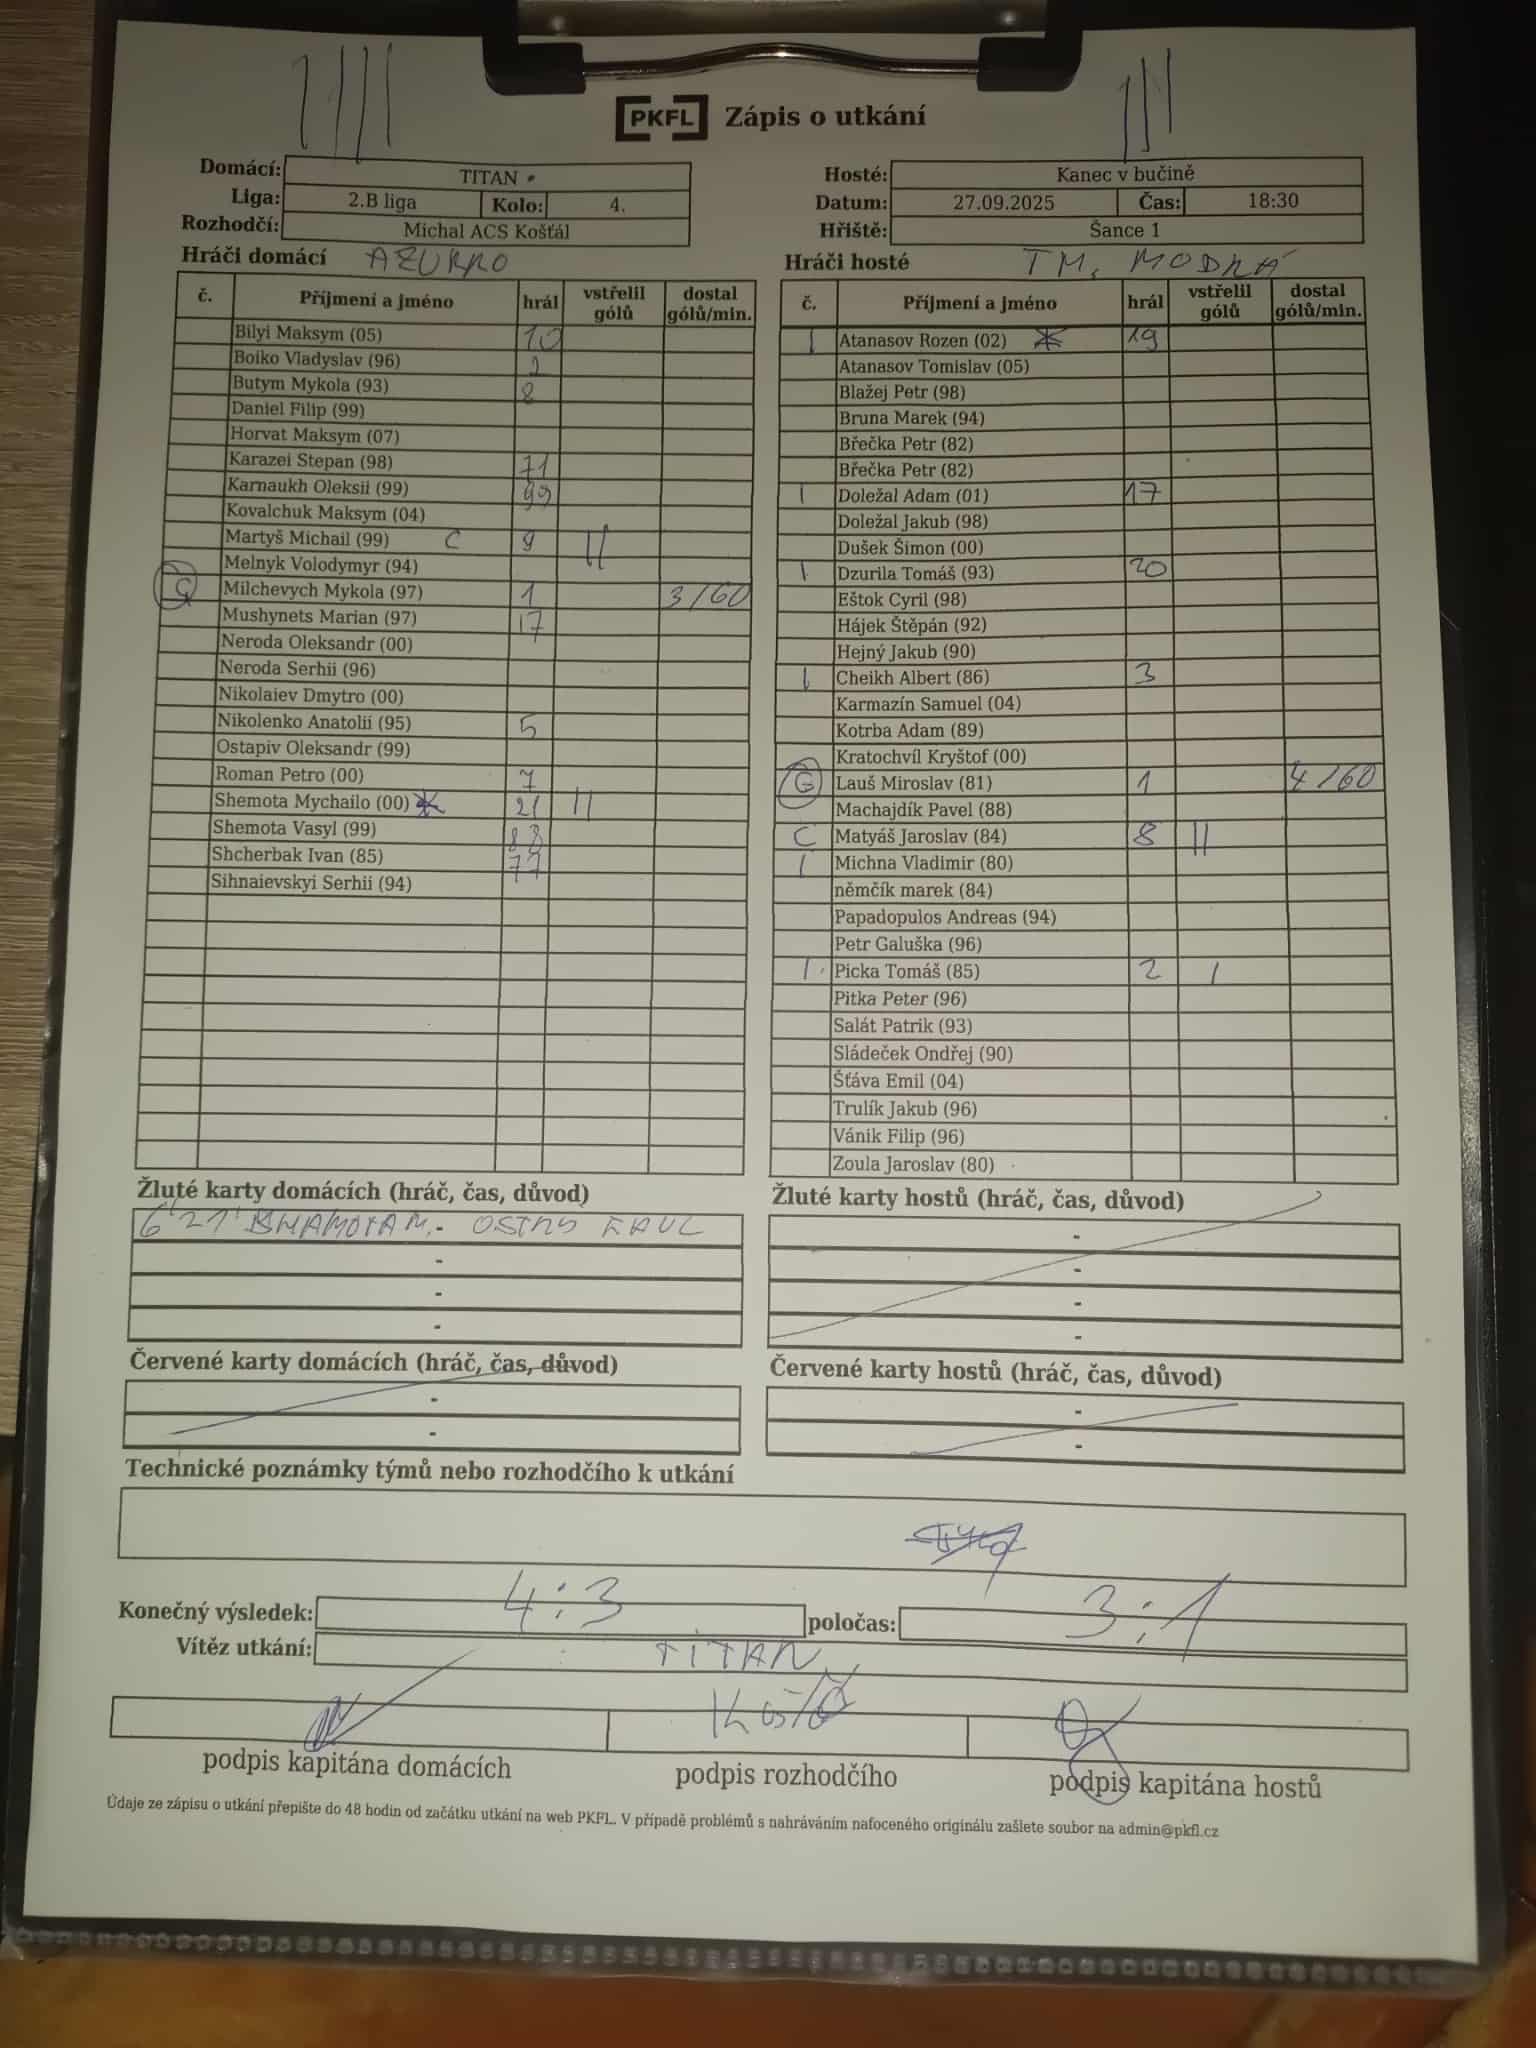 PKFL Zápis o utkání
Domácí: TITAN
Liga: 2.B liga Kolo: 4.
Rozhodčí: Michal ACS Košťál
Hosté: Kanec v bučině
Datum: 27.09.2025 Čas: 18:30
Hřiště: Šance 1
Hráči domácí AZURRO
č. Příjmení a jméno hrál vstřelil gólů dostal gólů/min.
Bilyi Maksym (05) 10
Boiko Vladyslav (96) 2
Butym Mykola (93) 8
Daniel Filip (99)
Horvat Maksym (07)
Karazei Stepan (98) 71
Karnaukh Oleksii (99) 99
Kovalchuk Maksym (04)
Martyš Michail (99) C 9 II
Melnyk Volodymyr (94)
G Milchevych Mykola (97) 1 3/60
Mushynets Marian (97) 17
Neroda Oleksandr (00)
Neroda Serhii (96)
Nikolaiev Dmytro (00)
Nikolenko Anatolii (95) 5
Ostapiv Oleksandr (99)
Roman Petro (00) 7
Shemota Mychailo (00) 21 II
Shemota Vasyl (99) 88
Shcherbak Ivan (85) 77
Sihnaievskyi Serhii (94)
Hráči hosté TM. MODRÁ
č. Příjmení a jméno hrál vstřelil gólů dostal gólů/min.
I Atanasov Rozen (02) 19
Atanasov Tomislav (05)
Blažej Petr (98)
Bruna Marek (94)
Břečka Petr (82)
Břečka Petr (82)
I Doležal Adam (01) 17
Doležal Jakub (98)
Dušek Šimon (00)
I Dzurila Tomáš (93) 20
Eštok Cyril (98)
Hájek Štěpán (92)
Hejný Jakub (90)
I Cheikh Albert (86) 3
Karmazín Samuel (04)
Kotrba Adam (89)
Kratochvíl Kryštof (00)
G Lauš Miroslav (81) 1 4/60
Machajdík Pavel (88)
C Matyáš Jaroslav (84) 8 II
I Michna Vladimir (80)
němčík marek (84)
Papadopulos Andreas (94)
Petr Galuška (96)
I Picka Tomáš (85) 2 I
Pitka Peter (96)
Salát Patrik (93)
Sládeček Ondřej (90)
Šťáva Emil (04)
Trulík Jakub (96)
Vánik Filip (96)
Zoula Jaroslav (80)
Žluté karty domácích (hráč, čas, důvod)
6' 21' - OSTRÝ FAUL
-
-
-
Žluté karty hostů (hráč, čas, důvod)
-
-
-
-
Červené karty domácích (hráč, čas, důvod)
-
-
Červené karty hostů (hráč, čas, důvod)
-
-
Technické poznámky týmů nebo rozhodčího k utkání
Konečný výsledek: 4:3 poločas: 3:1
Vítěz utkání: TITAN
podpis kapitána domácích podpis rozhodčího podpis kapitána hostů
Údaje ze zápisu o utkání přepište do 48 hodin od začátku utkání na web PKFL. V případě problémů s nahráváním nafoceného originálu zašlete soubor na admin@pkfl.cz